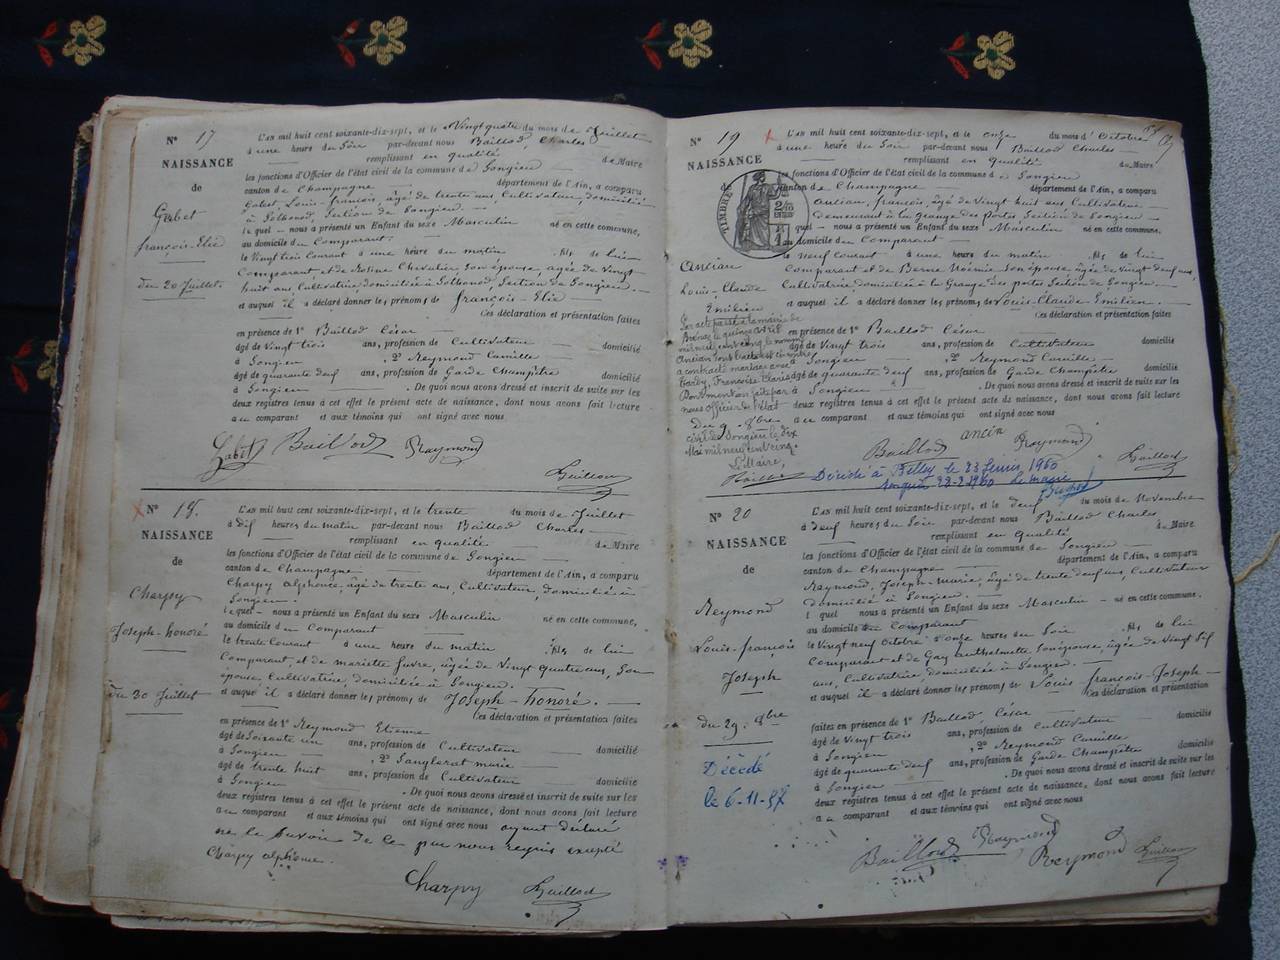 N° 17
NAISSANCE
de
Gabet
françois-Elie
du 20 Juillet.
L'AN mil huit cent soixante-dix-sept, et le Vingt quatre du mois de Juillet
à une heure du Soir par-devant nous Baillod, Charles
remplissant en qualité de Maire
les fonctions d'Officier de l'état civil de la commune de Songieu
canton de Champagne département de l'Ain, a comparu
Gabet, Louis-françois, âgé de trente ans, Cultivateur, domicilié
à Sothonod, Section de Songieu.
lequel nous a présenté un Enfant du sexe Masculin né en cette commune,
au domicile du Comparant.
le Vingt trois Courant à une heure du matin fils de lui
Comparant et de Rosine Chevalier son épouse, agée de Vingt
huit ans Cultivatrice domiciliée à Sothonod, Section de Songieu.
et auquel il a déclaré donner les prénoms de françois-Elie
Ces déclaration et présentation faites
en présence de 1° Baillod César
âgé de Vingt trois ans, profession de Cultivateur domicilié
à Songieu, 2° Reymond Camille
âgé de quarante neuf ans, profession de Garde Champêtre domicilié
à Songieu. De quoi nous avons dressé et inscrit de suite sur les
deux registres tenus à cet effet le présent acte de naissance, dont nous avons fait lecture
au comparant et aux témoins qui ont signé avec nous
Gabet Baillod Raymond
Baillod
N° 18.
NAISSANCE
de
Charpy
Joseph-honoré
du 30 Juillet
L'AN mil huit cent soixante-dix-sept, et le trente du mois de Juillet
à dix heures du matin par-devant nous Baillod Charles
remplissant en qualité de Maire
les fonctions d'Officier de l'état civil de la commune de Songieu
canton de Champagne département de l'Ain, a comparu
Charpy alphonce, âgé de trente ans, Cultivateur, domicilié à
Songieu.
lequel nous a présenté un Enfant du sexe Masculin né en cette commune,
au domicile du Comparant
le trente Courant à une heure du matin fils de lui
Comparant, et de mariette fuvre, âgée de Vingt quatre ans, Son
épouse, Cultivatrice, domiciliée à Songieu.
et auquel il a déclaré donner les prénoms de Joseph-honoré.
Ces déclaration et présentation faites
en présence de 1° Reymond Etienne
âgé de Soixante un ans, profession de Cultivateur domicilié
à Songieu, 2° Janglerat marie
âgé de trente huit ans, profession de Cultivateur domicilié
à Songieu. De quoi nous avons dressé et inscrit de suite sur les
deux registres tenus à cet effet le présent acte de naissance, dont nous avons fait lecture
au comparant et aux témoins qui ont signé avec nous ayant déclaré
ne le Savoir de Ce par nous requis excepté
Charpy alphonse.
Charpy Baillod
N° 19
NAISSANCE
de
TIMBRE
Ancian
Louis-Claude
Emilien
Du 9. 8bre
L'AN mil huit cent soixante-dix-sept, et le onze du mois d'Octobre
à une heure du Soir par-devant nous Baillod Charles
remplissant en qualité de Maire
les fonctions d'Officier de l'état civil de la commune de Songieu
canton de Champagne département de l'Ain, a comparu
Ancian, françois, âgé de Vingt huit ans Cultivateur
demeurant à la Grange des portes, Section de Songieu
lequel nous a présenté un Enfant du sexe Masculin né en cette commune,
au domicile du Comparant
le neuf courant à une heure du matin fils de lui
Comparant et de Berne Noémie son épouse âgée de vingt deux ans,
Cultivatrice domiciliée à la Grange des portes Section de Songieu.
et auquel il a déclaré donner les prénoms de Louis-Claude Emilien.
Ces déclaration et présentation faites
en présence de 1° Baillod César
âgé de Vingt trois ans, profession de Cultivateur domicilié
à Songieu, 2° Reymond Camille
âgé de quarante neuf ans, profession de Garde Champêtre domicilié
à Songieu. De quoi nous avons dressé et inscrit de suite sur les
deux registres tenus à cet effet le présent acte de naissance, dont nous avons fait lecture
au comparant et aux témoins qui ont signé avec nous
Par acte passé à la mairie de
le quinze avril
mil neuf cent cinq, le nommé
Ancian
a contracté mariage avec
Tardy, Françoise Clarisse
Dont mention faite par
nous Officier de l'état
civil de Songieu le dix
Mai mil neuf cent cinq.
Le Maire,
Baillod
Baillod ancian Raymond
Baillod
Décédé à Belley le 23 février 1960
Songieu 28-2-1960 le maire
N° 20
NAISSANCE
de
Reymond
Louis-françois
Joseph
du 29. 8bre
Décédé
le 6-11-57
L'AN mil huit cent soixante-dix-sept, et le deux du mois de Novembre
à deux heures du Soir par-devant nous Baillod Charles
remplissant en qualité de Maire
les fonctions d'Officier de l'état civil de la commune de Songieu
canton de Champagne département de l'Ain, a comparu
Raymond, Joseph-marie, âgé de trente deux ans, Cultivateur
domicilié à Songieu.
lequel nous a présenté un Enfant du sexe Masculin né en cette commune,
au domicile du Comparant
le Vingt neuf Octobre à onze heures du Soir fils de lui
Comparant et de Gay Anthelmette Son épouse, âgée de Vingt Six
ans, Cultivatrice, domiciliée à Songieu.
et auquel il a déclaré donner les prénoms de Louis-françois-Joseph
Ces déclaration et présentation
faites en présence de 1° Baillod, César
âgé de Vingt trois ans, profession de Cultivateur domicilié
à Songieu, 2° Reymond Camille
âgé de quarante neuf ans, profession de Garde Champêtre domicilié
à Songieu. De quoi nous avons dressé et inscrit de suite sur les
deux registres tenus à cet effet le présent acte de naissance, dont nous avons fait lecture
au comparant et aux témoins qui ont signé avec nous
Baillod Raymond
Reymond Baillod